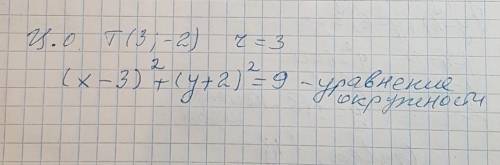 Ц.О. Т(3;-2) r=3
(x-3)²+(y+2)²=9 - уравнение
окружности